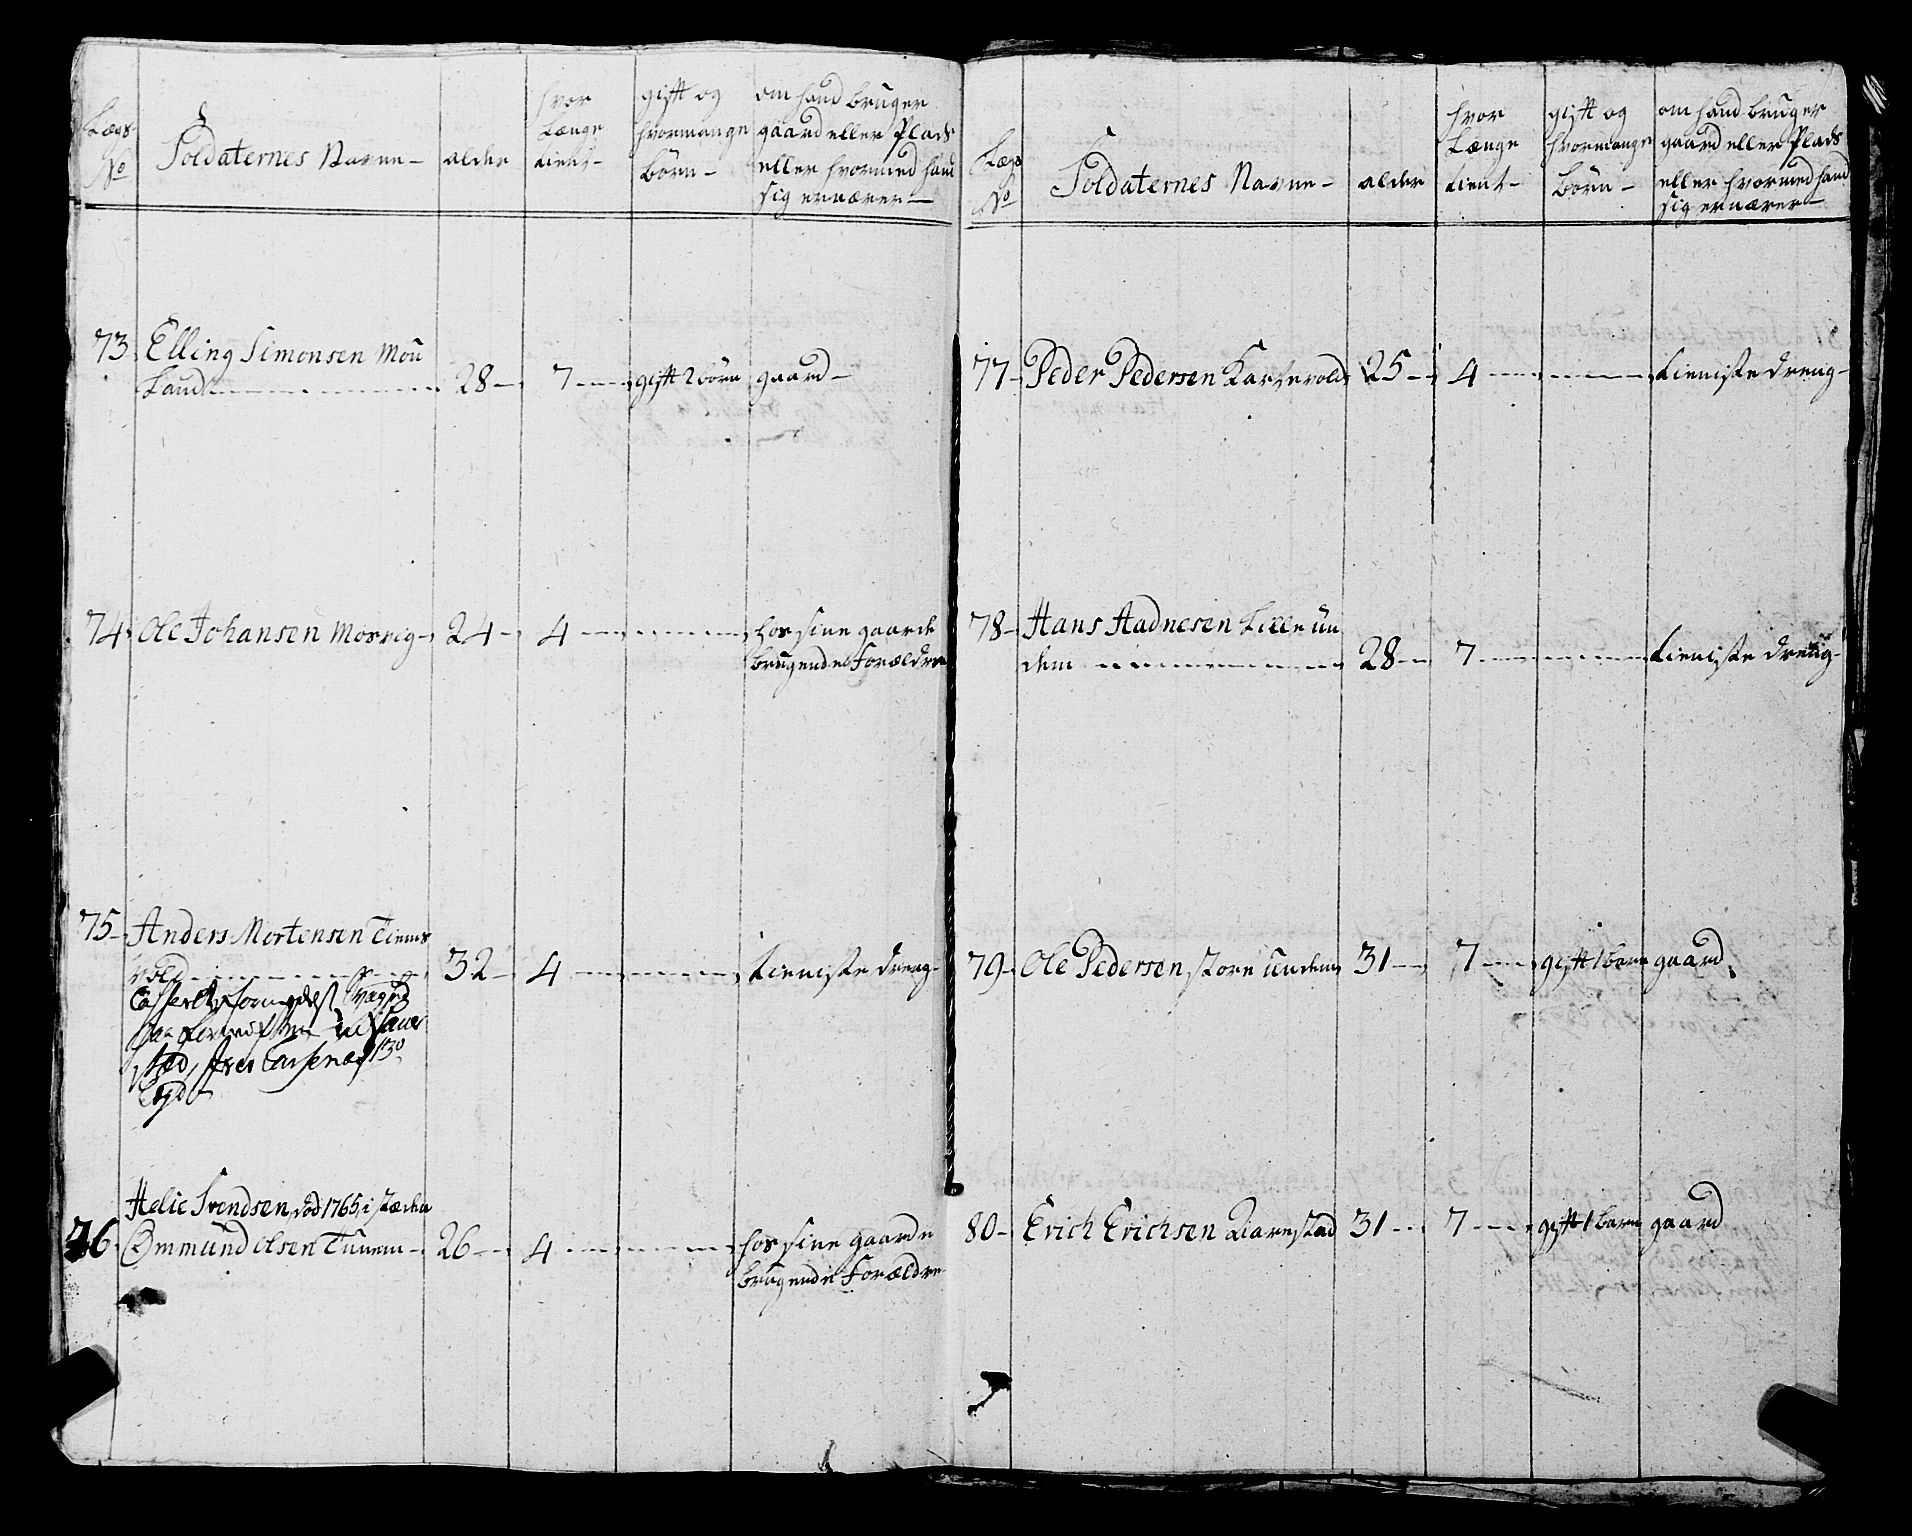 Lægs No
Soldaternes Navne-
alder
hvor
Længe
tient-
gifft og
hvormange
börn-
om hand bruger
gaard eller Plads
eller hvormed hand
sig ernærer-
73 Elling Simonsen Mou
Land 28- 7- gifft 2 börn gaard-
74. Ole Johansen Mosvig- 24- 4- hos sine gaard
brugende Forældre
75- Anders Mortensen Tiems
vold 32- 4- tieniste dreng-
Casseret formedelst
Helie Svendsen, död 1765, i stæden
76. Ommund Olsen Tunem- 26- 4- hos sine gaard
brugende Forældre
Lægs No
Soldaternes Navne-
alder
hvor
Længe
tient-
gifft og
hvormange
börn-
om hand bruger
gaard eller Plads
eller hvormed hand
sig ernærer-
77- Peder Pedersen Kartevold 25- 4- tieniste dreng-
78- Hans Aadnesen Lille Un
dem 28- 7- tieniste dreng-
79- Ole Pedersen store Undem 31- 7- gifft 1 barn gaard
80- Erich Erichsen Aarestad 31- 7- gifft 1 barn gaard